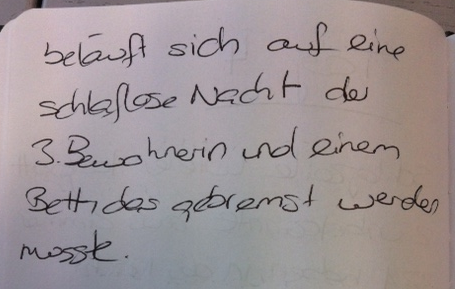 beläuft sich auf eine
schlaflose Nacht der
3. Bewohnerin und einem
Bett, das gebremst werden
musste.